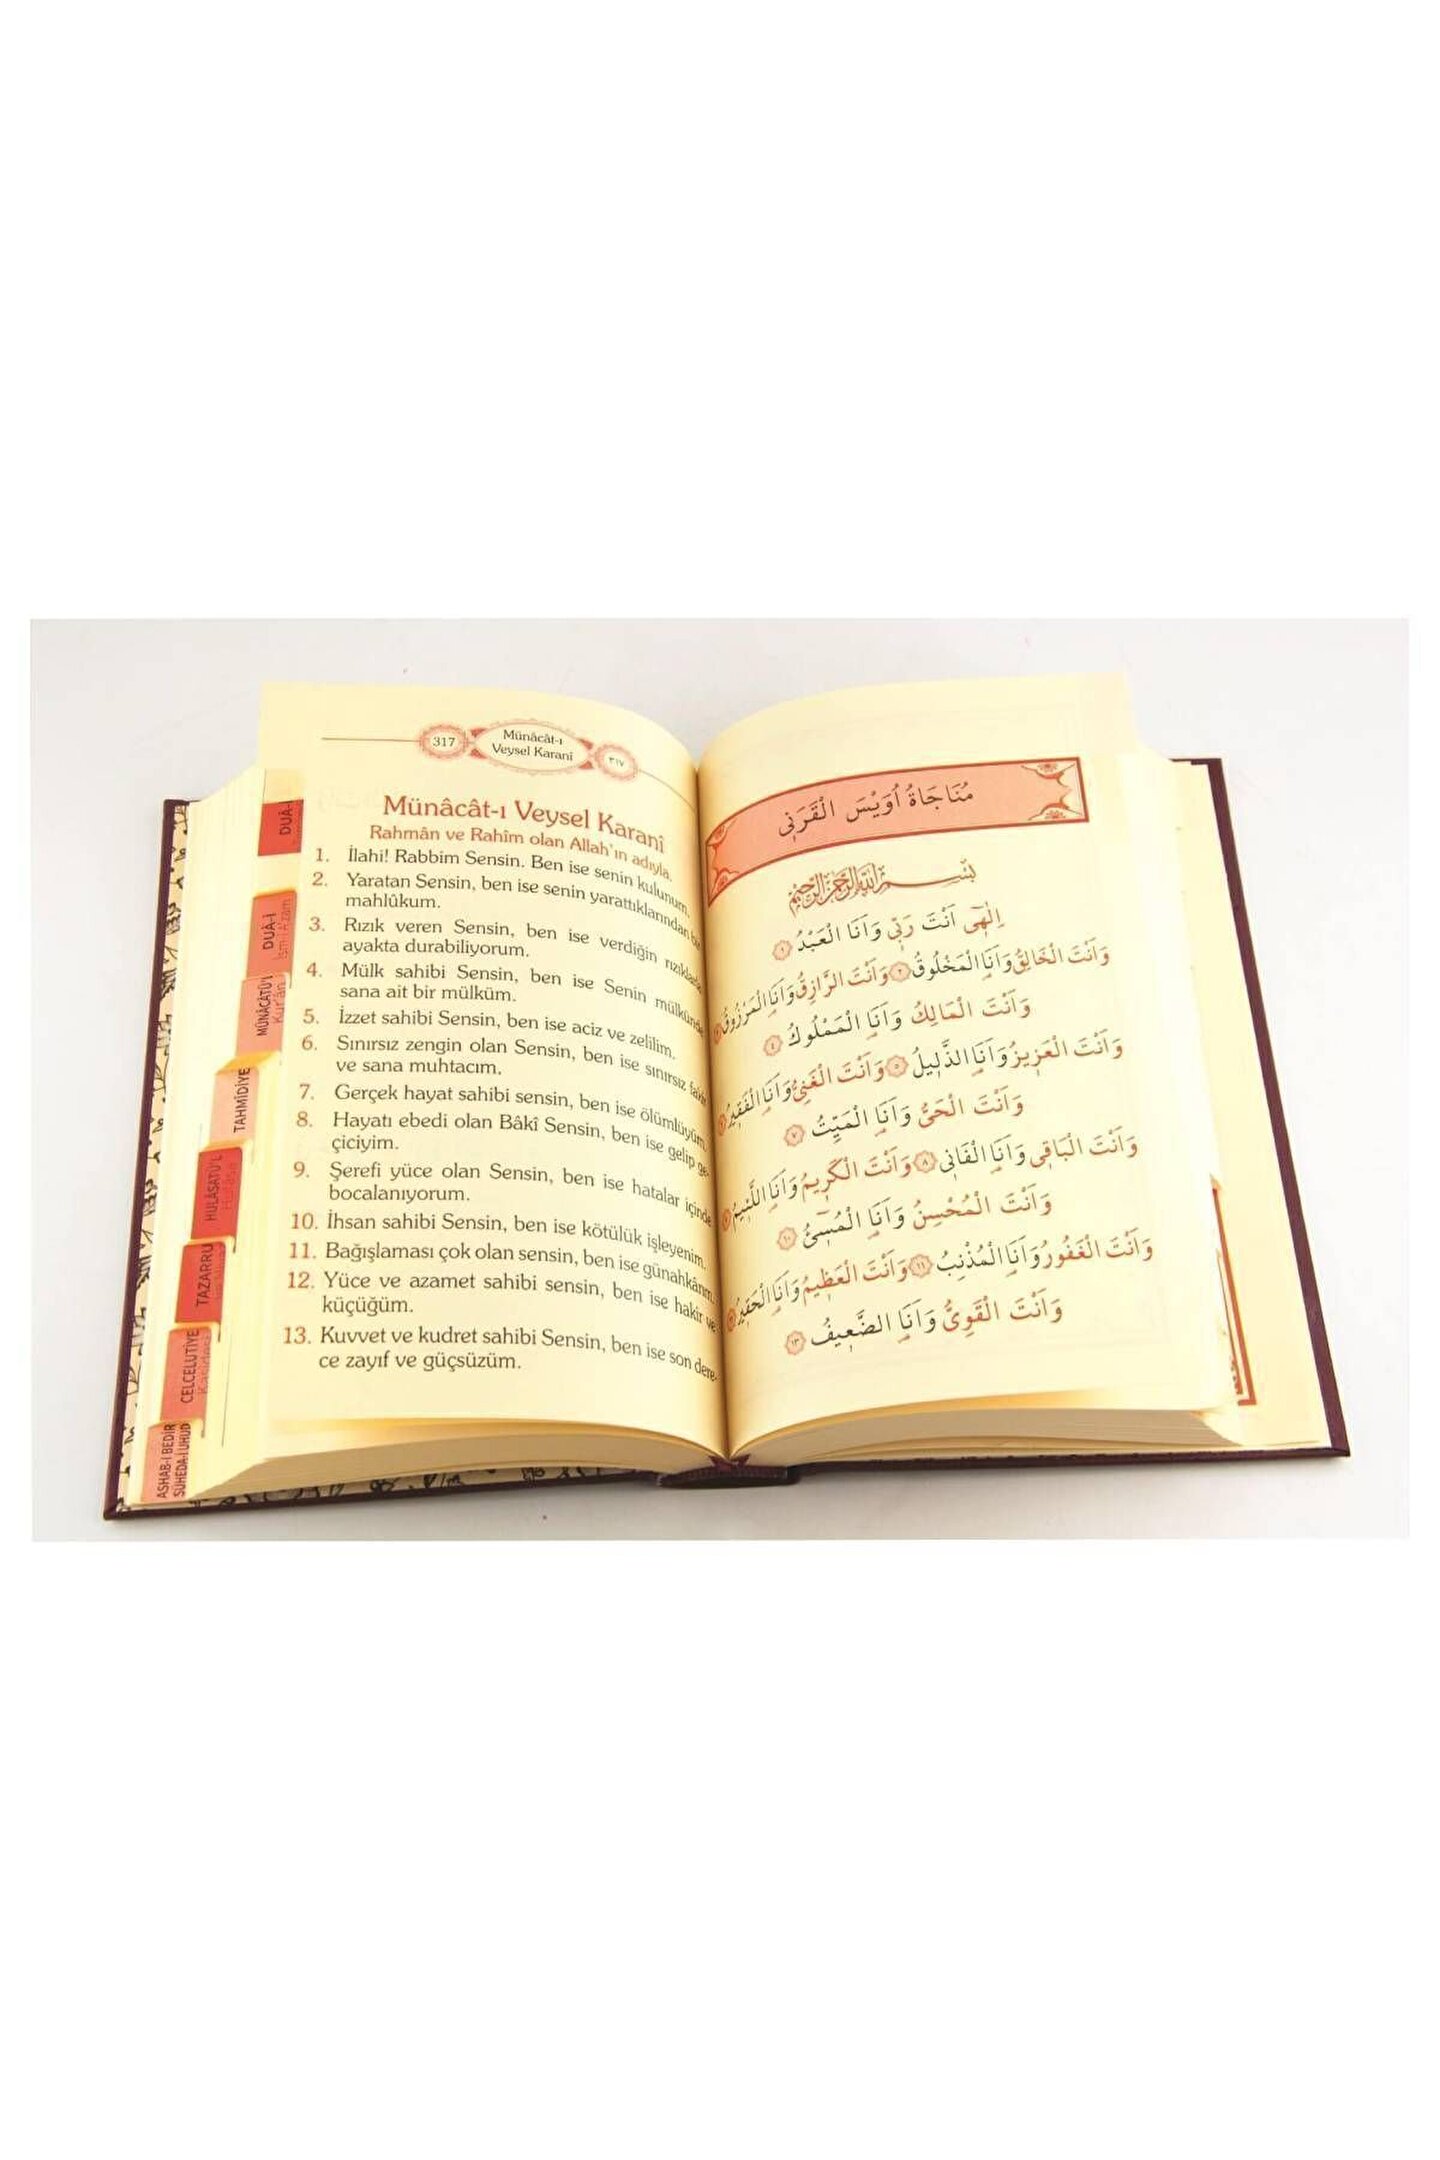 317
Münâcât-ı
Veysel Karanî
٣١٧
Münâcât-ı Veysel Karanî
Rahmân ve Rahîm olan Allah'ın adıyla.
1. İlahi! Rabbim Sensin. Ben ise senin kulunum.
2. Yaratan Sensin, ben ise senin yarattıklarından bir
mahlûkum.
3. Rızık veren Sensin, ben ise verdiğin rızıklarla
ayakta durabiliyorum.
4. Mülk sahibi Sensin, ben ise Senin mülkünde
sana ait bir mülküm.
5. İzzet sahibi Sensin, ben ise aciz ve zelilim.
6. Sınırsız zengin olan Sensin, ben ise sınırsız fakir
ve sana muhtacım.
7. Gerçek hayat sahibi sensin, ben ise ölümlüyüm.
8. Hayatı ebedi olan Bâkî Sensin, ben ise gelip ge-
çiciyim.
9. Şerefi yüce olan Sensin, ben ise hatalar içinde
bocalanıyorum.
10. İhsan sahibi Sensin, ben ise kötülük işleyenim.
11. Bağışlaması çok olan sensin, ben ise günahkârım.
12. Yüce ve azamet sahibi sensin, ben ise hakir ve
küçüğüm.
13. Kuvvet ve kudret sahibi Sensin, ben ise son dere-
ce zayıf ve güçsüzüm.
DUÂ-İ
DUÂ-İ
İsm-i A'zam
MÜNÂCÂTÜ'L
Kur'ân
TAHMİDİYE
HULÂSATÜ'L
TAZARRU
CELCELUTİYE
Kasidesi
ASHAB-I BEDİR
ŞÜHEDA-İ UHUD
مُنَاجَاةُ اُوَيْسَ الْقَرَنِى
بِسْمِ اللّٰهِ الرَّحْمٰنِ الرَّحِيمِ
اِلٰهِٓى اَنْتَ رَبِّى وَاَنَا الْعَبْدُ ١
وَاَنْتَ الْخَالِقُ وَاَنَا الْمَخْلُوقُ ٢ وَاَنْتَ الرَّازِقُ وَاَنَا الْمَرْزُوقُ ٣
وَاَنْتَ الْمَالِكُ وَاَنَا الْمَمْلُوكُ ٤
وَاَنْتَ الْعَزِيزُ وَاَنَا الذَّلِيلُ ٥ وَاَنْتَ الْغَنِىُّ وَاَنَا الْفَقِيرُ ٦
وَاَنْتَ الْحَىُّ وَاَنَا الْمَيِّتُ ٧
وَاَنْتَ الْبَاقِى وَاَنَا الْفَانِى ٨ وَاَنْتَ الْكَرِيمُ وَاَنَا اللَّئِيمُ ٩
وَاَنْتَ الْمُحْسِنُ وَاَنَا الْمُسِٓئُ ١٠
وَاَنْتَ الْغَفُورُ وَاَنَا الْمُذْنِبُ ١١ وَاَنْتَ الْعَظِيمُ وَاَنَا الْحَقِيرُ ١٢
وَاَنْتَ الْقَوِىُّ وَاَنَا الضَّعِيفُ ١٣